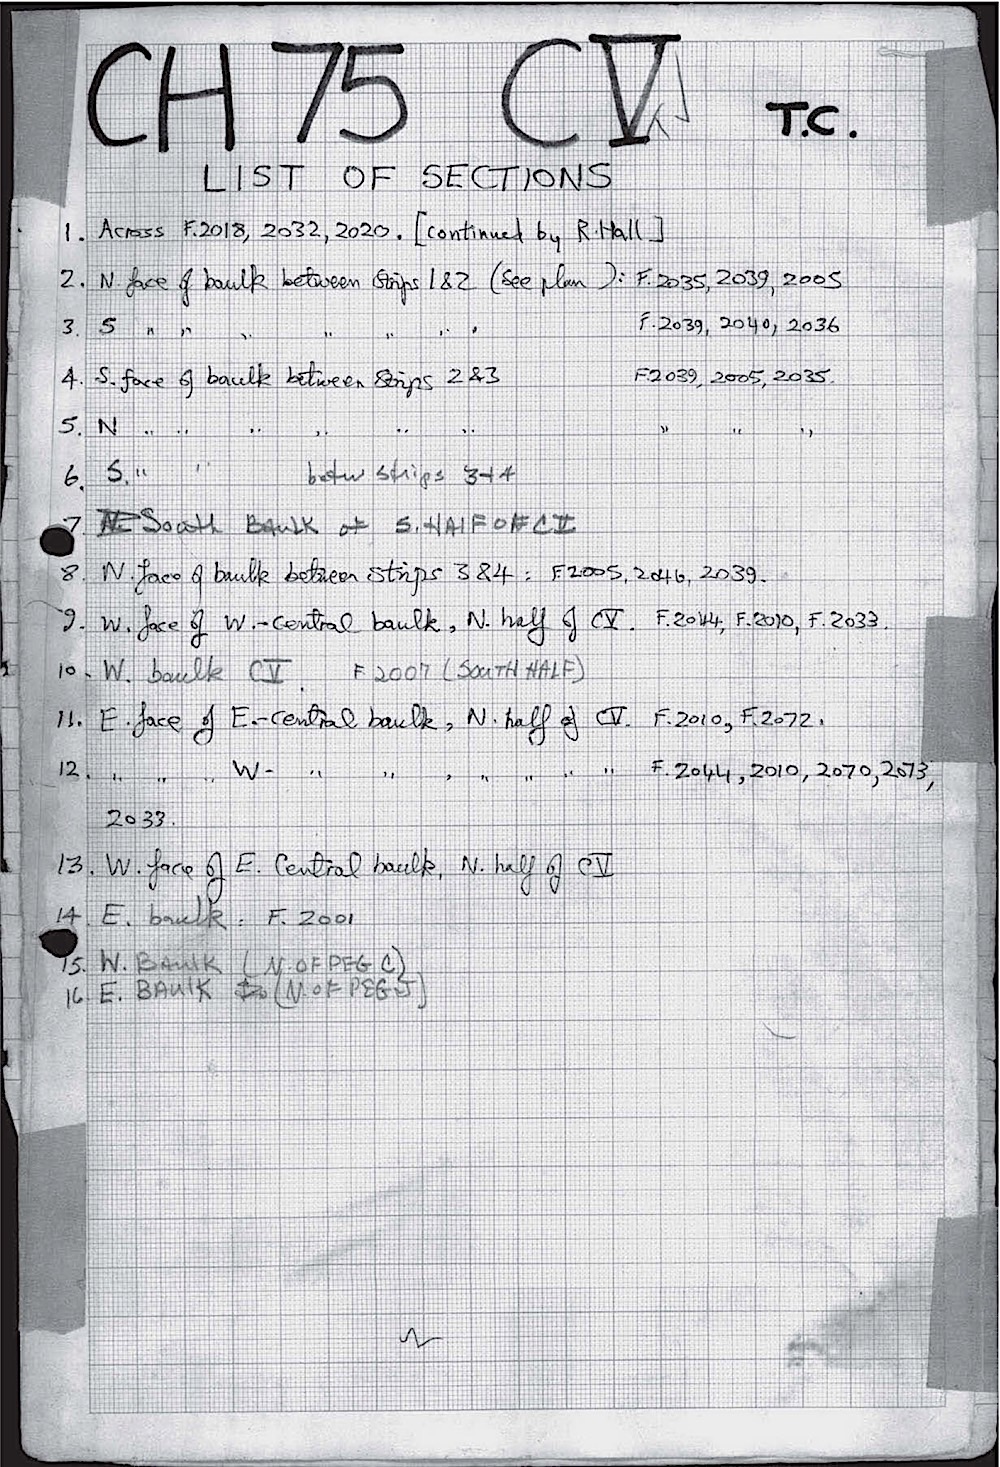 CH 75 CV
T.C.
LIST OF SECTIONS
1. Across F.2018, 2032, 2020. [continued by R. Hall]
2. N. face of baulk between strips 1&2 (see plan ): F.2035, 2039, 2005
3. S " " " " " " " F.2039, 2040, 2036
4. S. face of baulk between strips 2&3 F.2039, 2005, 2035.
5. N " " " " " " " " "
6. S. " " betw strips 3+4
7. South BAULK of S. HALF OF CV
8. N. face of baulk between strips 3&4: F.2005, 2046, 2039.
9. W. face of W.-central baulk, N. half of CV. F.2044, F.2010, F.2033.
10. W. baulk CV. F 2007 (SOUTH HALF)
11. E. face of E.-central baulk, N. half of CV. F.2010, F.2072.
12. " " " W- " " , " " " " F.2044, 2010, 2070, 2073,
2033.
13. W. face of E. Central baulk, N. half of CV
14. E. baulk: F. 2001
15. W. BAULK (N. OF PEG C)
16. E. BAULK (N. OF PEG J)